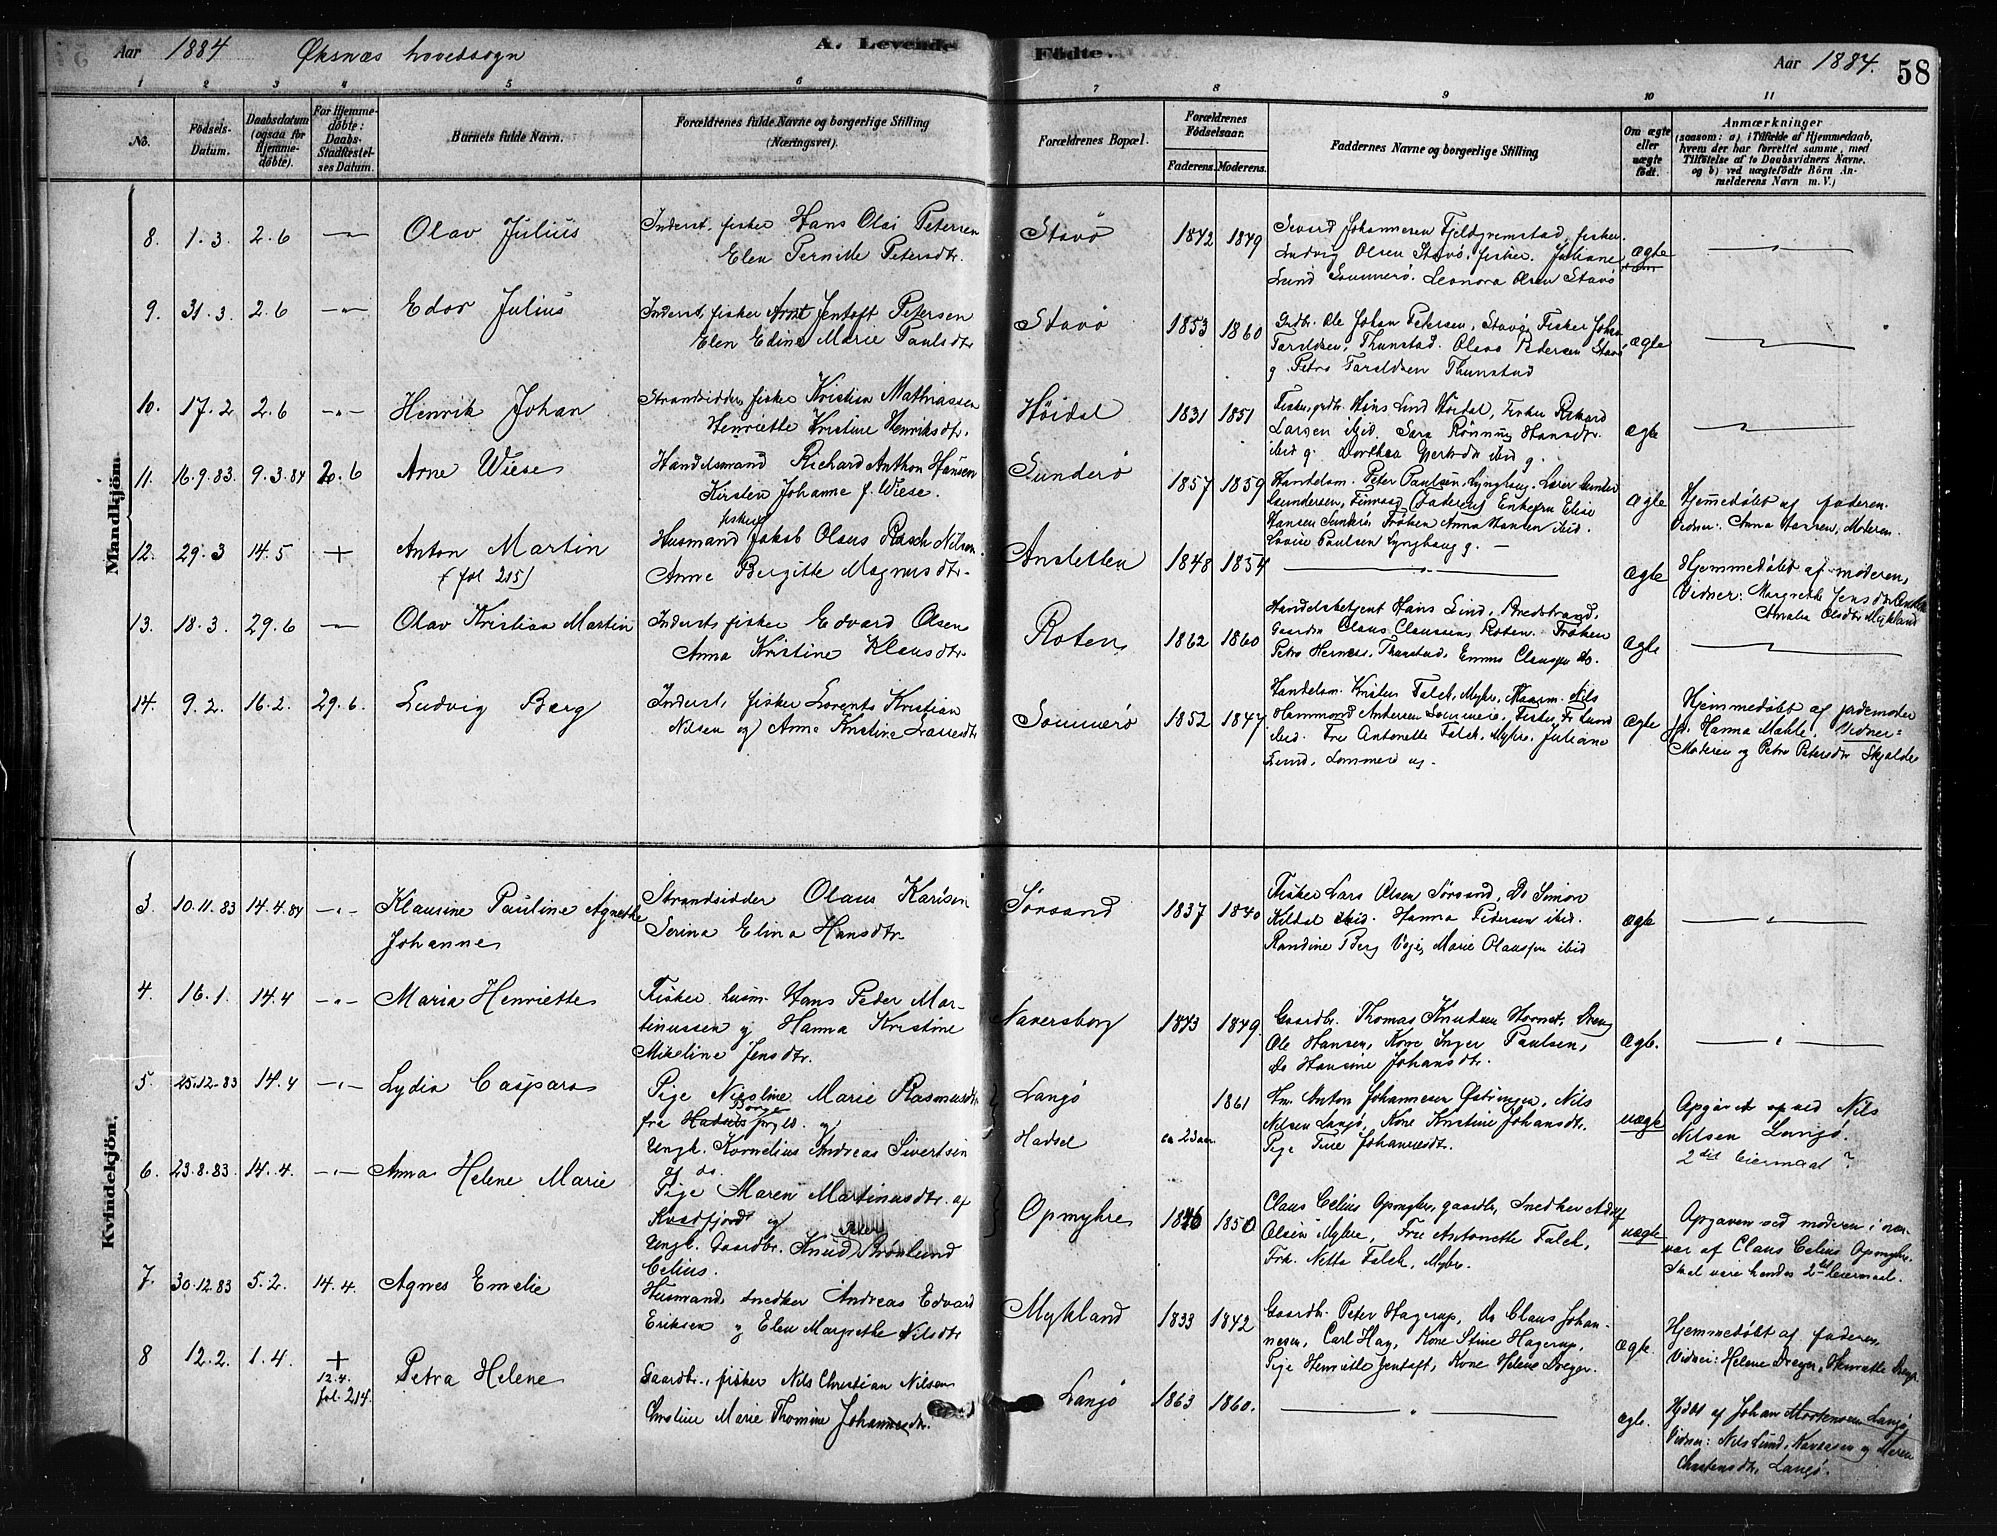 Aar 1884 Øksnæs hovedsogn A. Levende Födte. Aar 1884. 58
1 2 3 4 5 6 7 8 9 10 11
No.
Födsels-Datum.
Daabsdatum (ogsaa for Hjemmedöbte).
For Hjemmedöbte: Daabs-Stadfæstelses Datum.
Barnets fulde Navn.
Forældrenes fulde Navne og borgerlige Stilling (Næringsvei).
Forældrenes Bopæl.
Forældrenes Födselsaar.
Faderens. Moderens.
Faddernes Navne og borgerlige Stilling
Om ægte eller uægte födt.
Anmærkninger
(saasom: a) i Tilfælde af Hjemmedaab,
hvem der har forrettet samme, med
Tilföielse af to Daabsvidners Navne.
og b) ved uægtefödte Börn An-
melderens Navn m. V.)
Mandkjön.
8. 1.3. 2.6 Olav Julius
Inderst, fisker Hans Olai Petersen
Elen Pernille Petersdtr.
Stavø 1842 1849
Sivard Johannesen Fjeldgrimstad, fisker
Ludvig Olsen Stavø, fisker. Juliane
Lund Sommerø. Leonora Olsen Stavø
ægte
9. 31.3. 2.6 Edor Julius
Inderst, fisker Arnt Jentoft Petersen
Elen Edine Marie Paulsdtr
Stavø 1853 1860
Ole Johan Petersen, Stavø, Fisker Johan
Taraldsen, Thunstad. Olava Pedersen Stavø
g Petra Taraldsen Thunstad
ægte
10. 17.2 2.6 Henrik Johan
Strandsidder, fisker Kristian Mathiassen
Henriette Kristine Henriksdtr.
Høidal 1831 1851
Hans Lind Høidal, Fisker Rikard
Larsen ibid. Sara Rønning Hansdtr.
ibid g. Dorthea ibid g.
ægte
11. 16.9.83 9.3.84 2.6 Arne Wiese
Handelsmand Richard Anthon Hansen
Kirsten Johanne f. Wiese.
Sunderø 1857 1859
Handelsm. Peter Paulsen, Lynghaug. Lærer Gunder
Gundersen, (Faderen) Enkefru Elise
Hansen Frøken Anna Hansen ibid.
Lovise Paulsen Lynghaug g.
ægte
Hjemmedøbt af faderen.
Vidner: Anna Hansen, Moderen.
12. 29.3 14.5 + Anton Martin
(fol 215)
fisker
Husmand Jakob Olaus Rasch Nilsen.
Anne Bergitte Magnusdtr.
Ansletten 1848 1854
ægte
Hjemmedøbt af moderen,
Vidner: Margrethe Jensdtr
Amalia Olsdtr Mykland
13. 18.3. 29.6 Olav Kristian Martin
Inderst, fisker Edvard Olsen
Anna Kristine Klausdtr.
Roten 1862 1860
Handelsbetjent Hans Lind, Bredstrand,
Claus Claussen, Roten. Frøken
Petra Thunstad, Emma Claussen do.
ægte
14. 9.2. 16.2. 29.6. Ludvig Berg
Inderst, fisker Lorents Kristian
Nilsen og Anne Kristine Larsdtr
Sommerø 1852 1847
Handelsm. Kristen Falch, Myhre, Nils
Hammond Andersen Sommerø, Fisker Fr. Lund
ibid. Fru Antonette Falch, Myhre, Juliane
Lund, Sommerø ug.
ægte
Hjemmedøbt af jordemoder
Hanna Mahle. Vidner:
Moderen og Petra Petersdtr Skjelde
Kvindekjön.
3. 10.11.83 14.4.84 Klausine Pauline Agnethe
Johanne
Strandsidder Olaus Karisen
Serina Elina Hansdtr.
Sørsand 1837 1840
Fisker Lars Olsen Sørsand, Do Simon
Kildal ibid. Hanna Pedersen ibid.
Randine Berg Veje, Marie Olausen ibid
ægte
4. 16.1. 14.4 Maria Henriette
Fisker husm. Hans Peder Mar-
tinussen g Hanna Kristine
Mikeline Jensdtr.
Naversborg 1843 1849.
Gaardbr. Thomas Knudsen Hornet, Dreng
Ole Hansen, Kone Inger Paulsen,
Do Hansine Johansdtr.
ægte.
5. 25.12.83 14.4 Lydia Caspara
Pige Nicoline Marie Rasmusdtr
fra Hadsels prgld. og
Ungk. Kornelius Andreas Sivertsen
af do.
Langø
Hadsel ca 23 aar 1861
Anton Johannesen Østringen, Nils
Nilsen Langø, Kone Kristine Johansdtr.
Pige Trine Johannesdtr.
uægte
Opgivet op ved Nils
Nilsen Langø.
2det leiermaal?
6. 23.8.83 14.4. Anna Helene Marie
Pige Maren Martinusdtr. af
Kvædfjord og
Ungk. Gaardbr. Knud Brønlund
Celius.
Opmyhre 1846 1850
Claus Celius Opmyhre, gaardbr, Snedker Adolf
Olsen Myhre, Fru Antonette Falch,
Frk. Netta Falch, Myhre.
uægte
Opgaven ved moderen i nær-
vær af Claus Celius Opmyhre.
Skal være hendes 2det leiermaal.
7. 30.12.83 5.2. 14.4. Agnes Emelie
Husmand, snedker Andreas Edvard
Eriksen g Elen Margrethe Nilsdtr
Mykland 1833 1842
Gaardbr. Peter Hagerup, Do Claus Johan-
nesen, Carl Hay, Kone Stine Hagerup,
Pige Henriette Jentoft, Kone Helene Dreyer.
ægte.
Hjemmedøbt af faderen,
Vidner: Helene Dreyer, Henriette
8 12.2. 1.4. + Petra Helene
12.4.
fol. 214.
Gaardbr., fisker Nils Christian Nilsen
Christine Marie Thomine Johannesdtr.
Langø 1863 1860.
ægte.
Hjdbt af Johan Mortensen Langø
Vidner: Nils Lund, og Maren
Christensdtr, Langø.